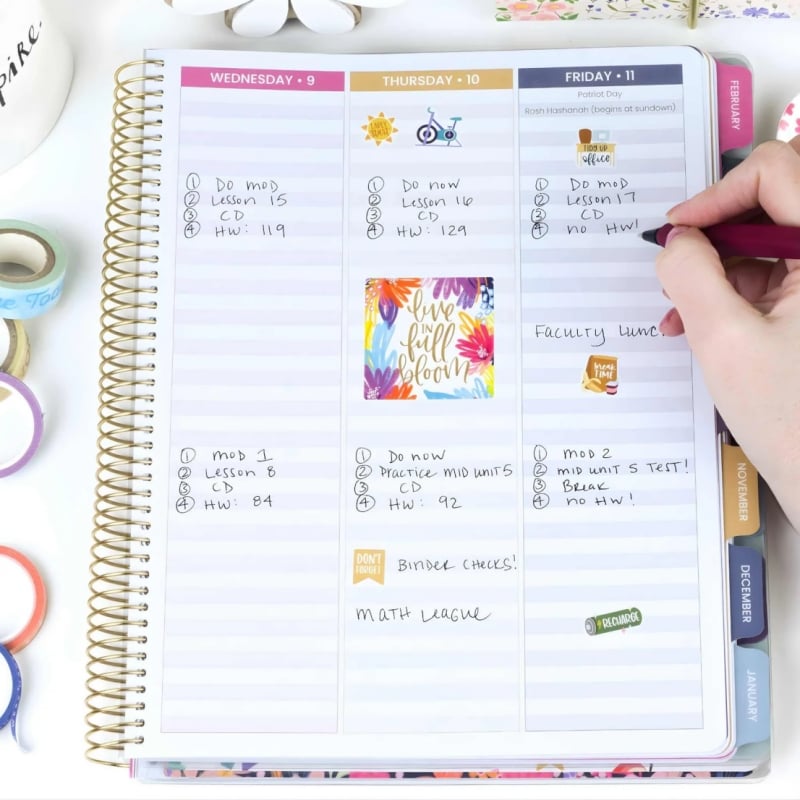 pire.
WEDNESDAY • 9
① Do mod
② Lesson 15
③ CD
④ HW: 119
① mod 1
② Lesson 8
③ CD
④ HW: 84
THURSDAY • 10
① Do now
② Lesson 16
③ CD
④ HW: 129
live
IN
full
bloom
① Do now
② Practice mid unit 5
③ CD
④ HW: 92
DON'T
FORGET
Binder checks!
math League
FRIDAY • 11
Patriot Day
Rosh Hashanah (begins at sundown)
TIDY UP
office
① Do mod
② Lesson 17
③ CD
④ no HW!
Faculty Lunc
break
TIME
① mod 2
② mid unit 5 Test!
③ Break
④ no HW!
RECHARGE
FEBRUARY
NOVEMBER
DECEMBER
JANUARY